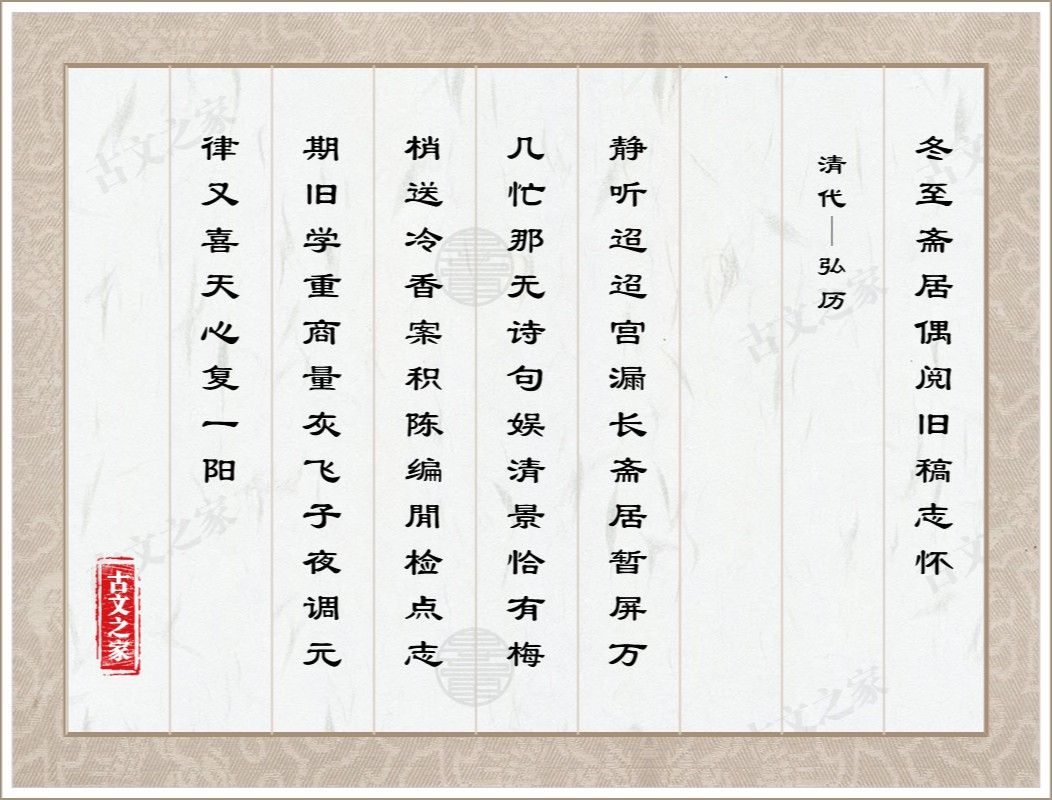 冬至斋居偶阅旧稿志怀
清代—弘历
静听迢迢宫漏长斋居暂屏万
几忙那无诗句娱清景恰有梅
梢送冷香案积陈编閒检点志
期旧学重商量灰飞子夜调元
律又喜天心复一阳
古文之家
古文之家
古文之家
古文之家
古文之家